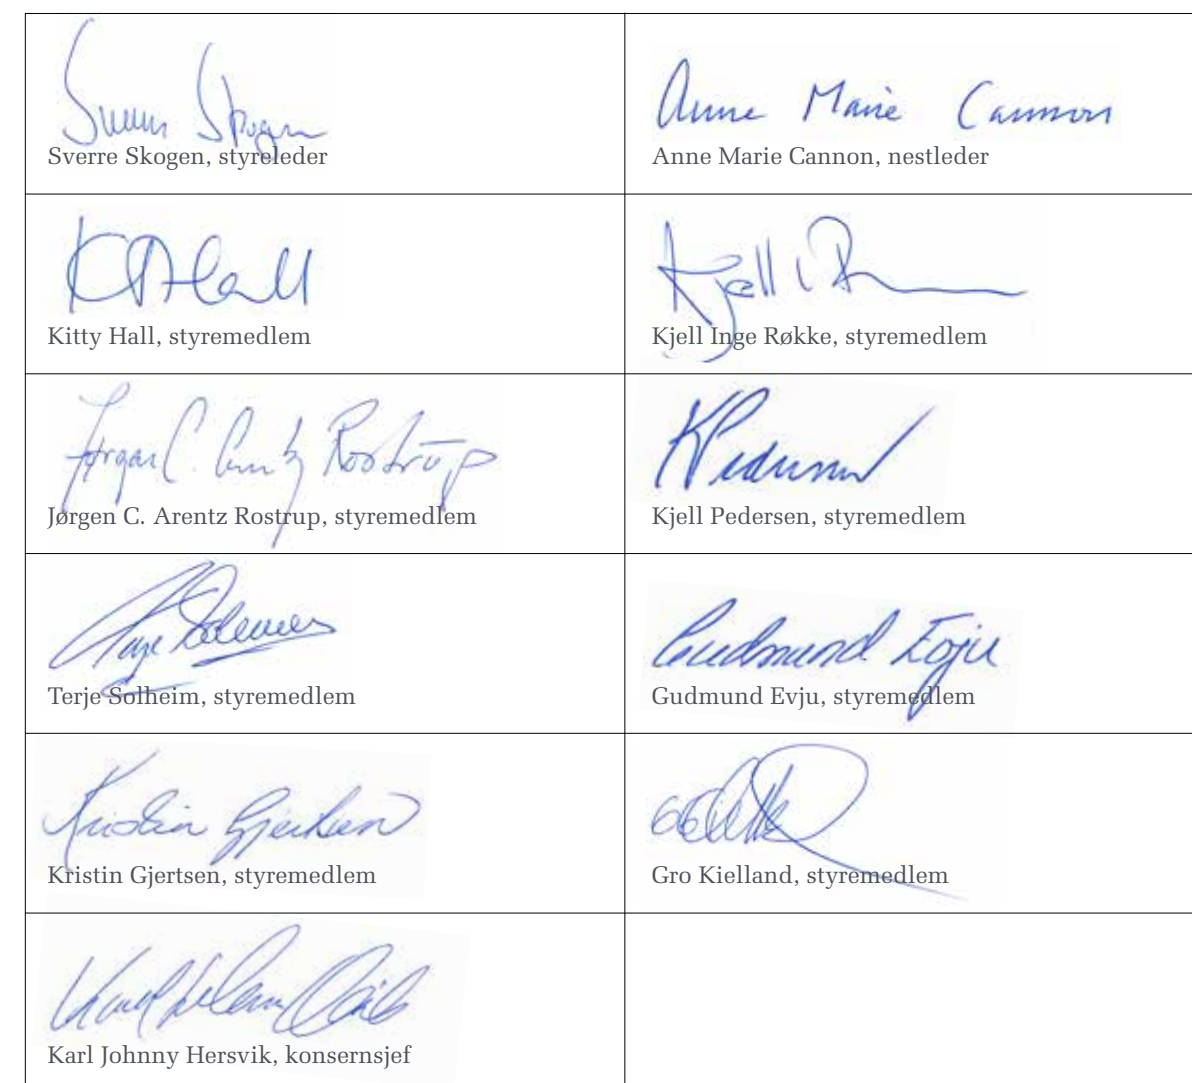 Sverre Skogen
Sverre Skogen, styreleder
Anne Marie Cannon
Anne Marie Cannon, nestleder
K Hall
Kitty Hall, styremedlem
Kjell I R
Kjell Inge Røkke, styremedlem
Jørgen C. Arentz Rostrup
Jørgen C. Arentz Rostrup, styremedlem
K Pedersen
Kjell Pedersen, styremedlem
Terje Solheim
Terje Solheim, styremedlem
Gudmund Evju
Gudmund Evju, styremedlem
Kristin Gjertsen
Kristin Gjertsen, styremedlem
Gro Kielland, styremedlem
Karl Johnny Hersvik, konsernsjef